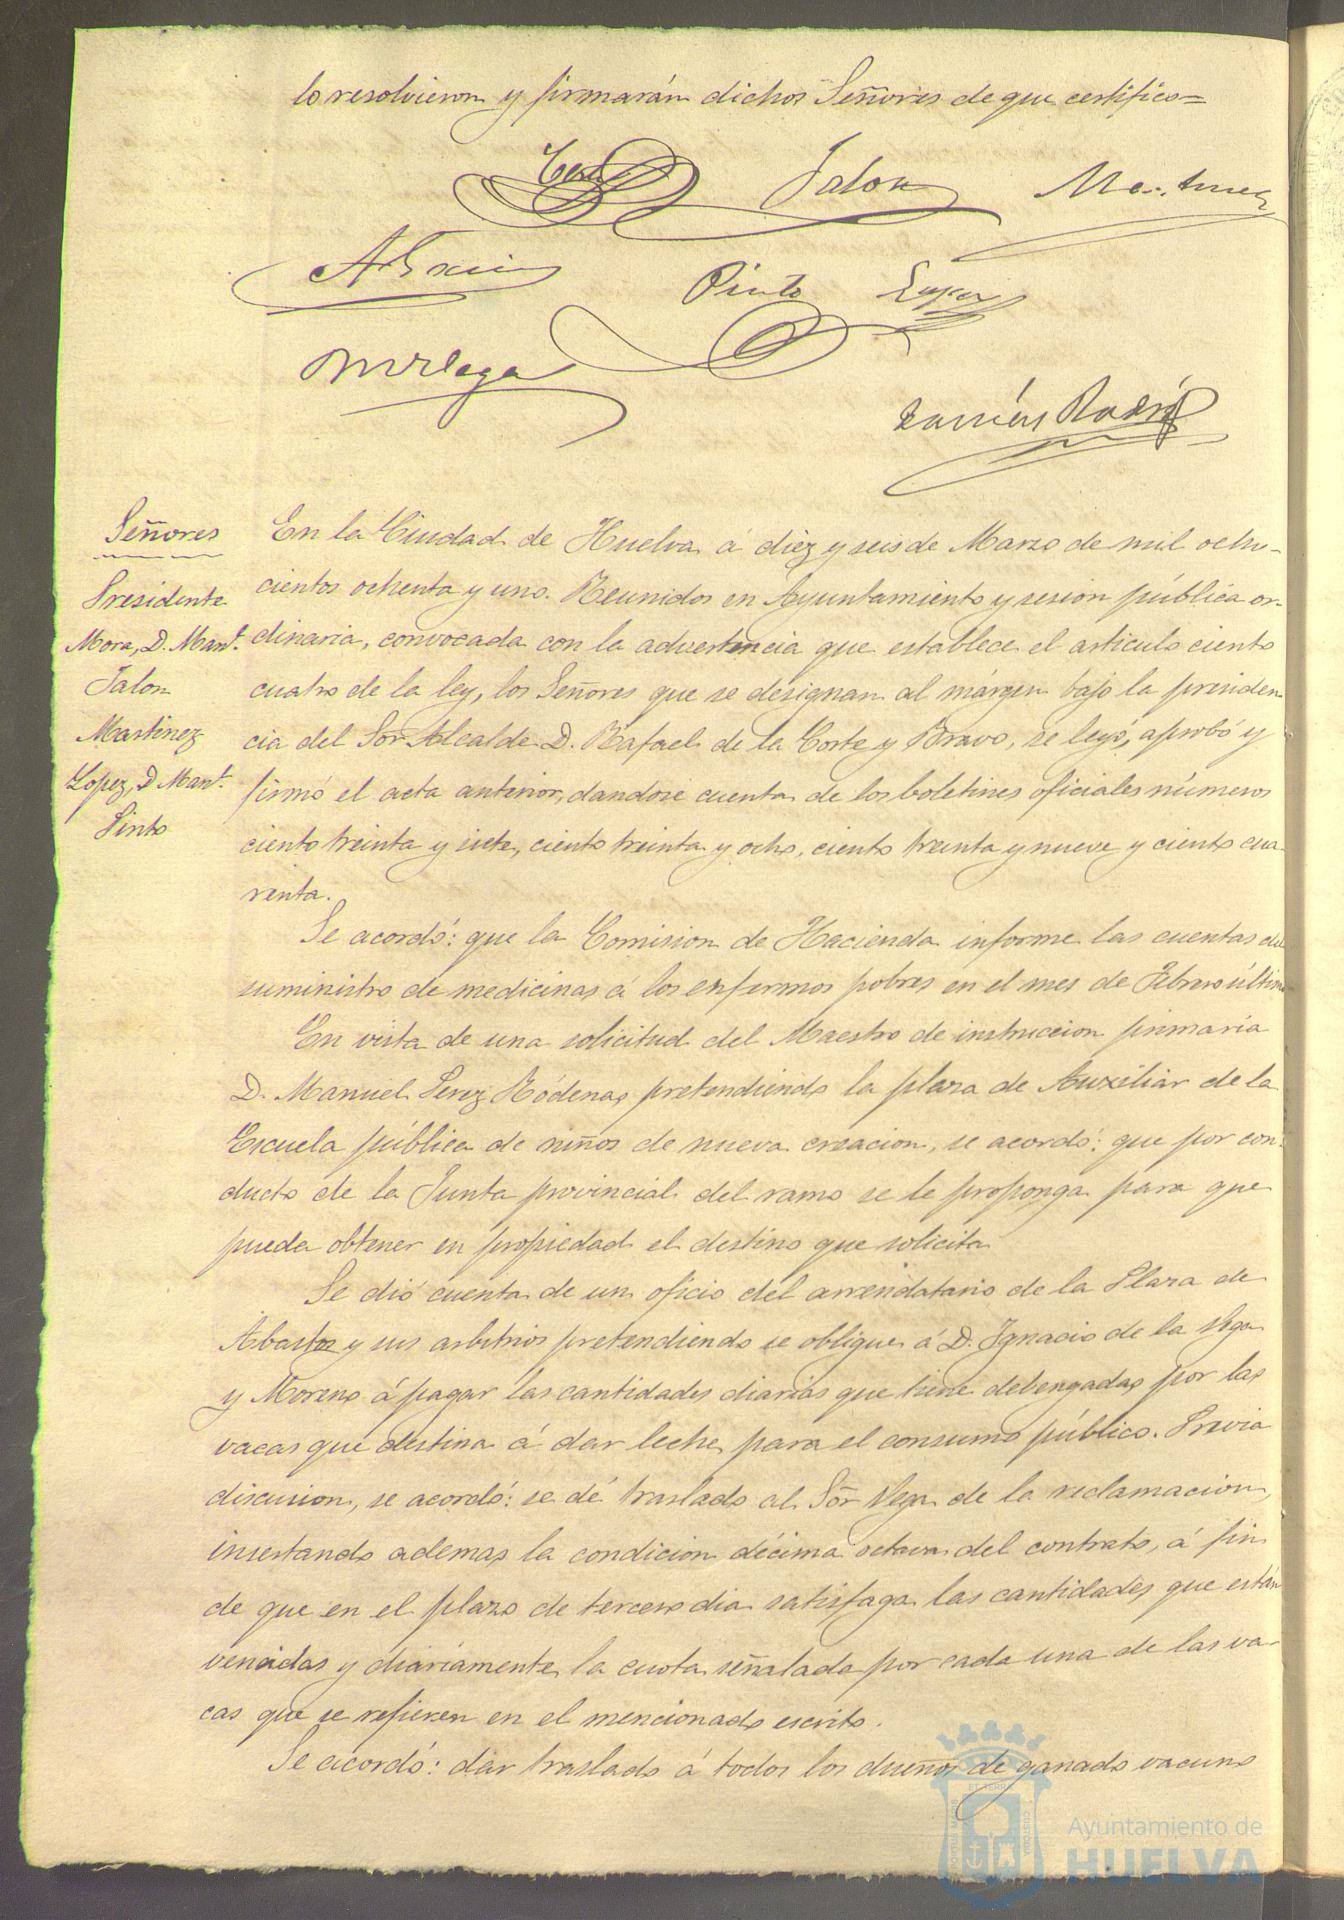 lo resolvieron y firmarán dichos Señores de que certifico=
Jalon
Pinto Lopez
Ramón
Señores
Presidente
Mora, D. Manl.
Jalon
Martinez
Lopez, D Manl.
Pinto
En la Ciudad de Huelva á diez y seis de Marzo de mil ocho-
cientos ochenta y uno. Reunidos en Ayuntamiento y sesion pública or-
dinaria, convocada con la advertencia que establece el articulo ciento
cuatro de la ley, los Señores que se designan al márgen bajo la presiden
cia del Sor Alcalde D. Rafael de la Corte y Bravo, se leyó, aprobó y
firmó el acta anterior, dandose cuenta de los boletines oficiales números
ciento treinta y siete, ciento treinta y ocho, ciento treinta y nueve y ciento cua
renta.
Se acordó: que la Comision de Hacienda informe las cuentas del
suministro de medicinas á los enfermos pobres en el mes de Febrero último
En vista de una solicitud del Maestro de instruccion primaria
D. Manuel Perez Ródenas pretendiendo la plaza de Auxiliar de la
Escuela pública de niños de nueva creacion, se acordó: que por con-
ducto de la Junta provincial del ramo se le proponga para que
pueda obtener en propiedad el destino que solicita
Se dió cuenta de un oficio del arrendatario de la Plaza de
Abastos y sus arbitrios pretendiendo se obligue á D. Ignacio de la Vega
y Moreno á pagar las cantidades diarias que tiene debengadas por las
vacas que destina á dar leche para el consumo público. Previa
discusion, se acordó: se dé traslado al Sõr Vega de la reclamacion,
insertando ademas la condicion décima octava del contrato, á fin
de que en el plazo de tercero dia satisfaga las cantidades que están
vencidas y diariamente la cuota señalada por cada una de las va-
cas que se refieren en el mencionado escrito.
Se acordó: dar traslado á todos los dueños de ganado vacuno
Ayuntamiento de
HUELVA